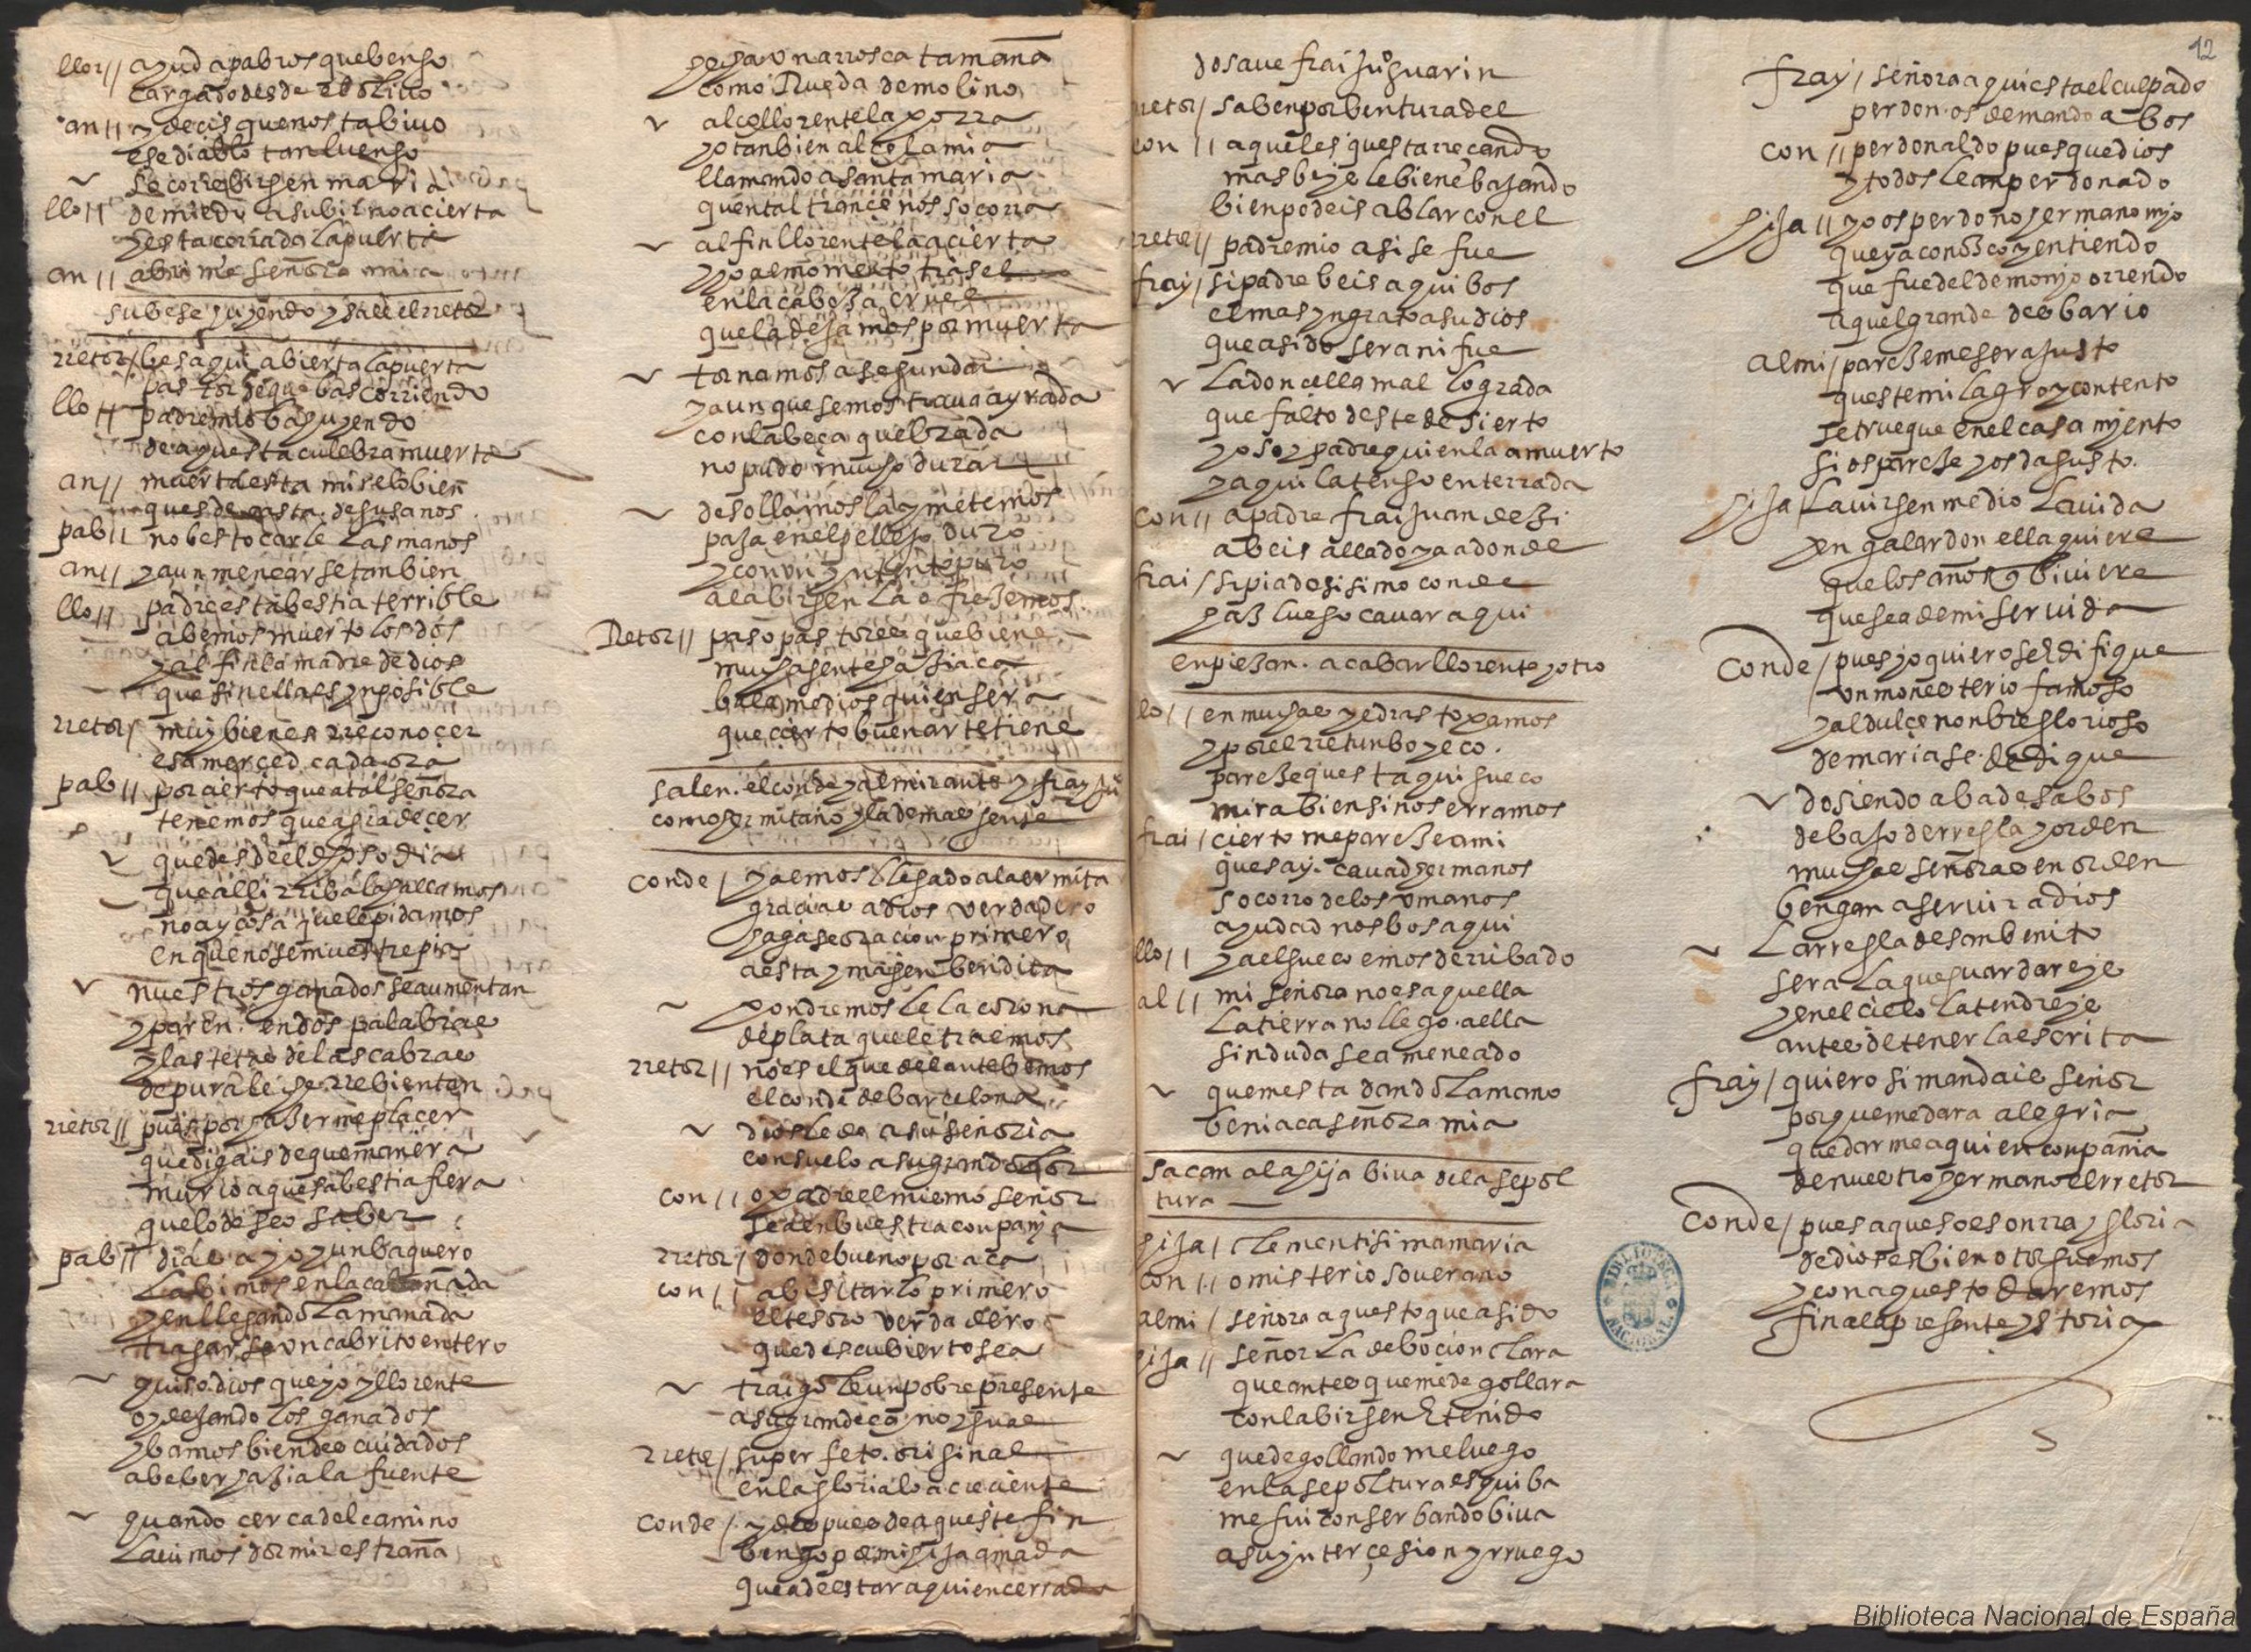 llor// ayud apabros quebengo
cargado desde
an// y decis quenos tabivo
ese diablo tanluengo
socorre birgen maria
llo// de miedo a subir no acierta
y esta cerrada la puerta
an// abrime señora mia
subese huyendo y sale el rretor
rretor/ hes aqui abierta la puerta
pastor de que bas corriendo
llo// padre mio ba huyendo
de aquesta culebra muerta
an// muerta esta miselo bien
ques de casta de gusanos
pab// no bes tocarle las manos
an// y aun menearse tanbien
llo// padre esta bestia terrible
abemos muerto los dos
y al fin la madre de dios
que sin ella es ynposible
rretor/ muy bien es rreconoçer
esa merçed cada ora
pab// por cierto que a tal señora
tenemos que agradeçer
que desde el dichoso dia
que alli rriba la hallamos
no ay cosa que le pidamos
en que no se muestre pia
nuestros ganados se aumentan
y paren en dos palabras
y las tetas de las cabras
de pura leche rrebientan
rretor// pues por hazerme plaçer
que digais de que manera
murio aquesa bestia fiera
que lo deseo saber
pab// diae a yo y un baquero
la bimos en la cabañada
y en llegando la manada
tragarse un cabrito entero
quiso dios que yo y llorente
oy dejando los ganados
ybamos bien descuidados
a beber hazia la fuente
quando cerca del camino
la vimos dormir estraña
hecha una rrosca tamaña
como Rueda de molino
alço llorente la porra
yo tanbien alçe la mia
llamando a santa maria
quen tal trançe nos socorra
al fin llorente la açierta
yo al momento tras el
en la cabeza cruel
que la dejamos por muerta
tornamos a segundar
y aunque se mostrava ayrada
con la beça quebrada
no pudo mucho durar
desollamosla y metemos
paja en el pellejo duro
y con un yntento puro
a la birgen la ofrezemos
Retor// paso pastores que biene
mucha gente hazia ca
balame dios quien sera
que çierto buen arte tiene
salen. el conde y almirante y fray juº
como hermitaño y la demas gente
conde/ ya emos llegado a la ermita
graçias a dios verdadero
hagase oraçion primero
a esta ymagen bendita
pondremosle la corona
de plata que le traemos
rretor// no es el que delante bemos
el conde de barcelona
dios le de a su señoria
consuelo a su gran dolor
con// o padre el mismo señor
sea en buestra conpañia
rretor/ donde bueno por aca
con// a bisitar lo primero
el tesoro verdadero
que descubierto sea
traigole un pobre presente
a su grandeça no ygual
rrete/ su perfeto original
en la gloria lo acreciente
conde/ y despues de aqueste fin
bengo por mi hija amada
que a de estar aqui encerrada
do save frai juº guarin
rretor/ saben por bentura del
con// aquel es questa rreçando
mas beje le biene bajando
bien podeis ablar con el
rretor// padre mio asi se fue
fray/ si padre beis aqui bos
el mas yngrato a su dios
que a sido sera ni fue
la donçella mal lograda
que falto deste desierto
yo soy padre quien la a muerto
y aqui la tengo enterrada
con// a padre frai juan dezi
abeis allado ya adonde
frai/ si piadosisimo conde
haz luego cavar aqui
enpiezan. a cabar llorente y otro
llo// en muchas piedras topamos
y por el rretunbo y eco
pareze questa qui hueco
mira bien si nos erramos
frai/ cierto me pareze a mi
ques ay. cavad hermanos
socorro de los umanos
ayudadnos bos aqui
llo// ya el hueco emos derribado
al// mi señora no es aquella
la tierra no llego. a ella
sin duda se a meneado
que mesta dando la mano
beni aca señora mia
sacan a la hija biva de la sepol
tura
hija/ clementisima maria
con// o misterio soverano
almi/ señora aquesto que a sido
hija// señor la deboçion clara
que antes que me degollara
con la birgen e tenido
que degollandome luego
en la sepoltura esquiba
me fui conserbando biva
a su ynterçesion y rruego
12
fray/ señora aqui esta el culpado
perdon. os demando a bos
con// perdonaldo pues que dios
y todos le an perdonado
hija// yo os perdono hermano mjo
que ya conozco y entiendo
que fue del demonjo orrendo
aquel grande desbario
almi/ parezeme sera justo
queste milagro y contento
se trueque en el casamjento
si os pareze y os da gusto.
hija/ la virgen me dio la vida
y en galardon ella quiere
que los años q biviere
que sea de mi servida
conde/ pues yo quiero se edifique
un monesterio famoso
y al dulçe nonbre glorioso
de maria se. dedique
do siendo abadesa bos
debajo de rregla y orden
muchas señoras en orden
bengan a servir a dios
la rregla de san benito
sera la que guardareje
y en el cielo la tendreje
antes de tener la escrita
fray/ quiero si mandais señor
porque me dara alegria
quedarme aqui en conpañia
de nuestro hermano el rretor
conde/ pues aqueso es onrra y gloria
de dios es bien otorguemos
y con aquesto daremos
fin a la presente ystoria
BIBLIOTECA NACIONAL
Biblioteca Nacional de España